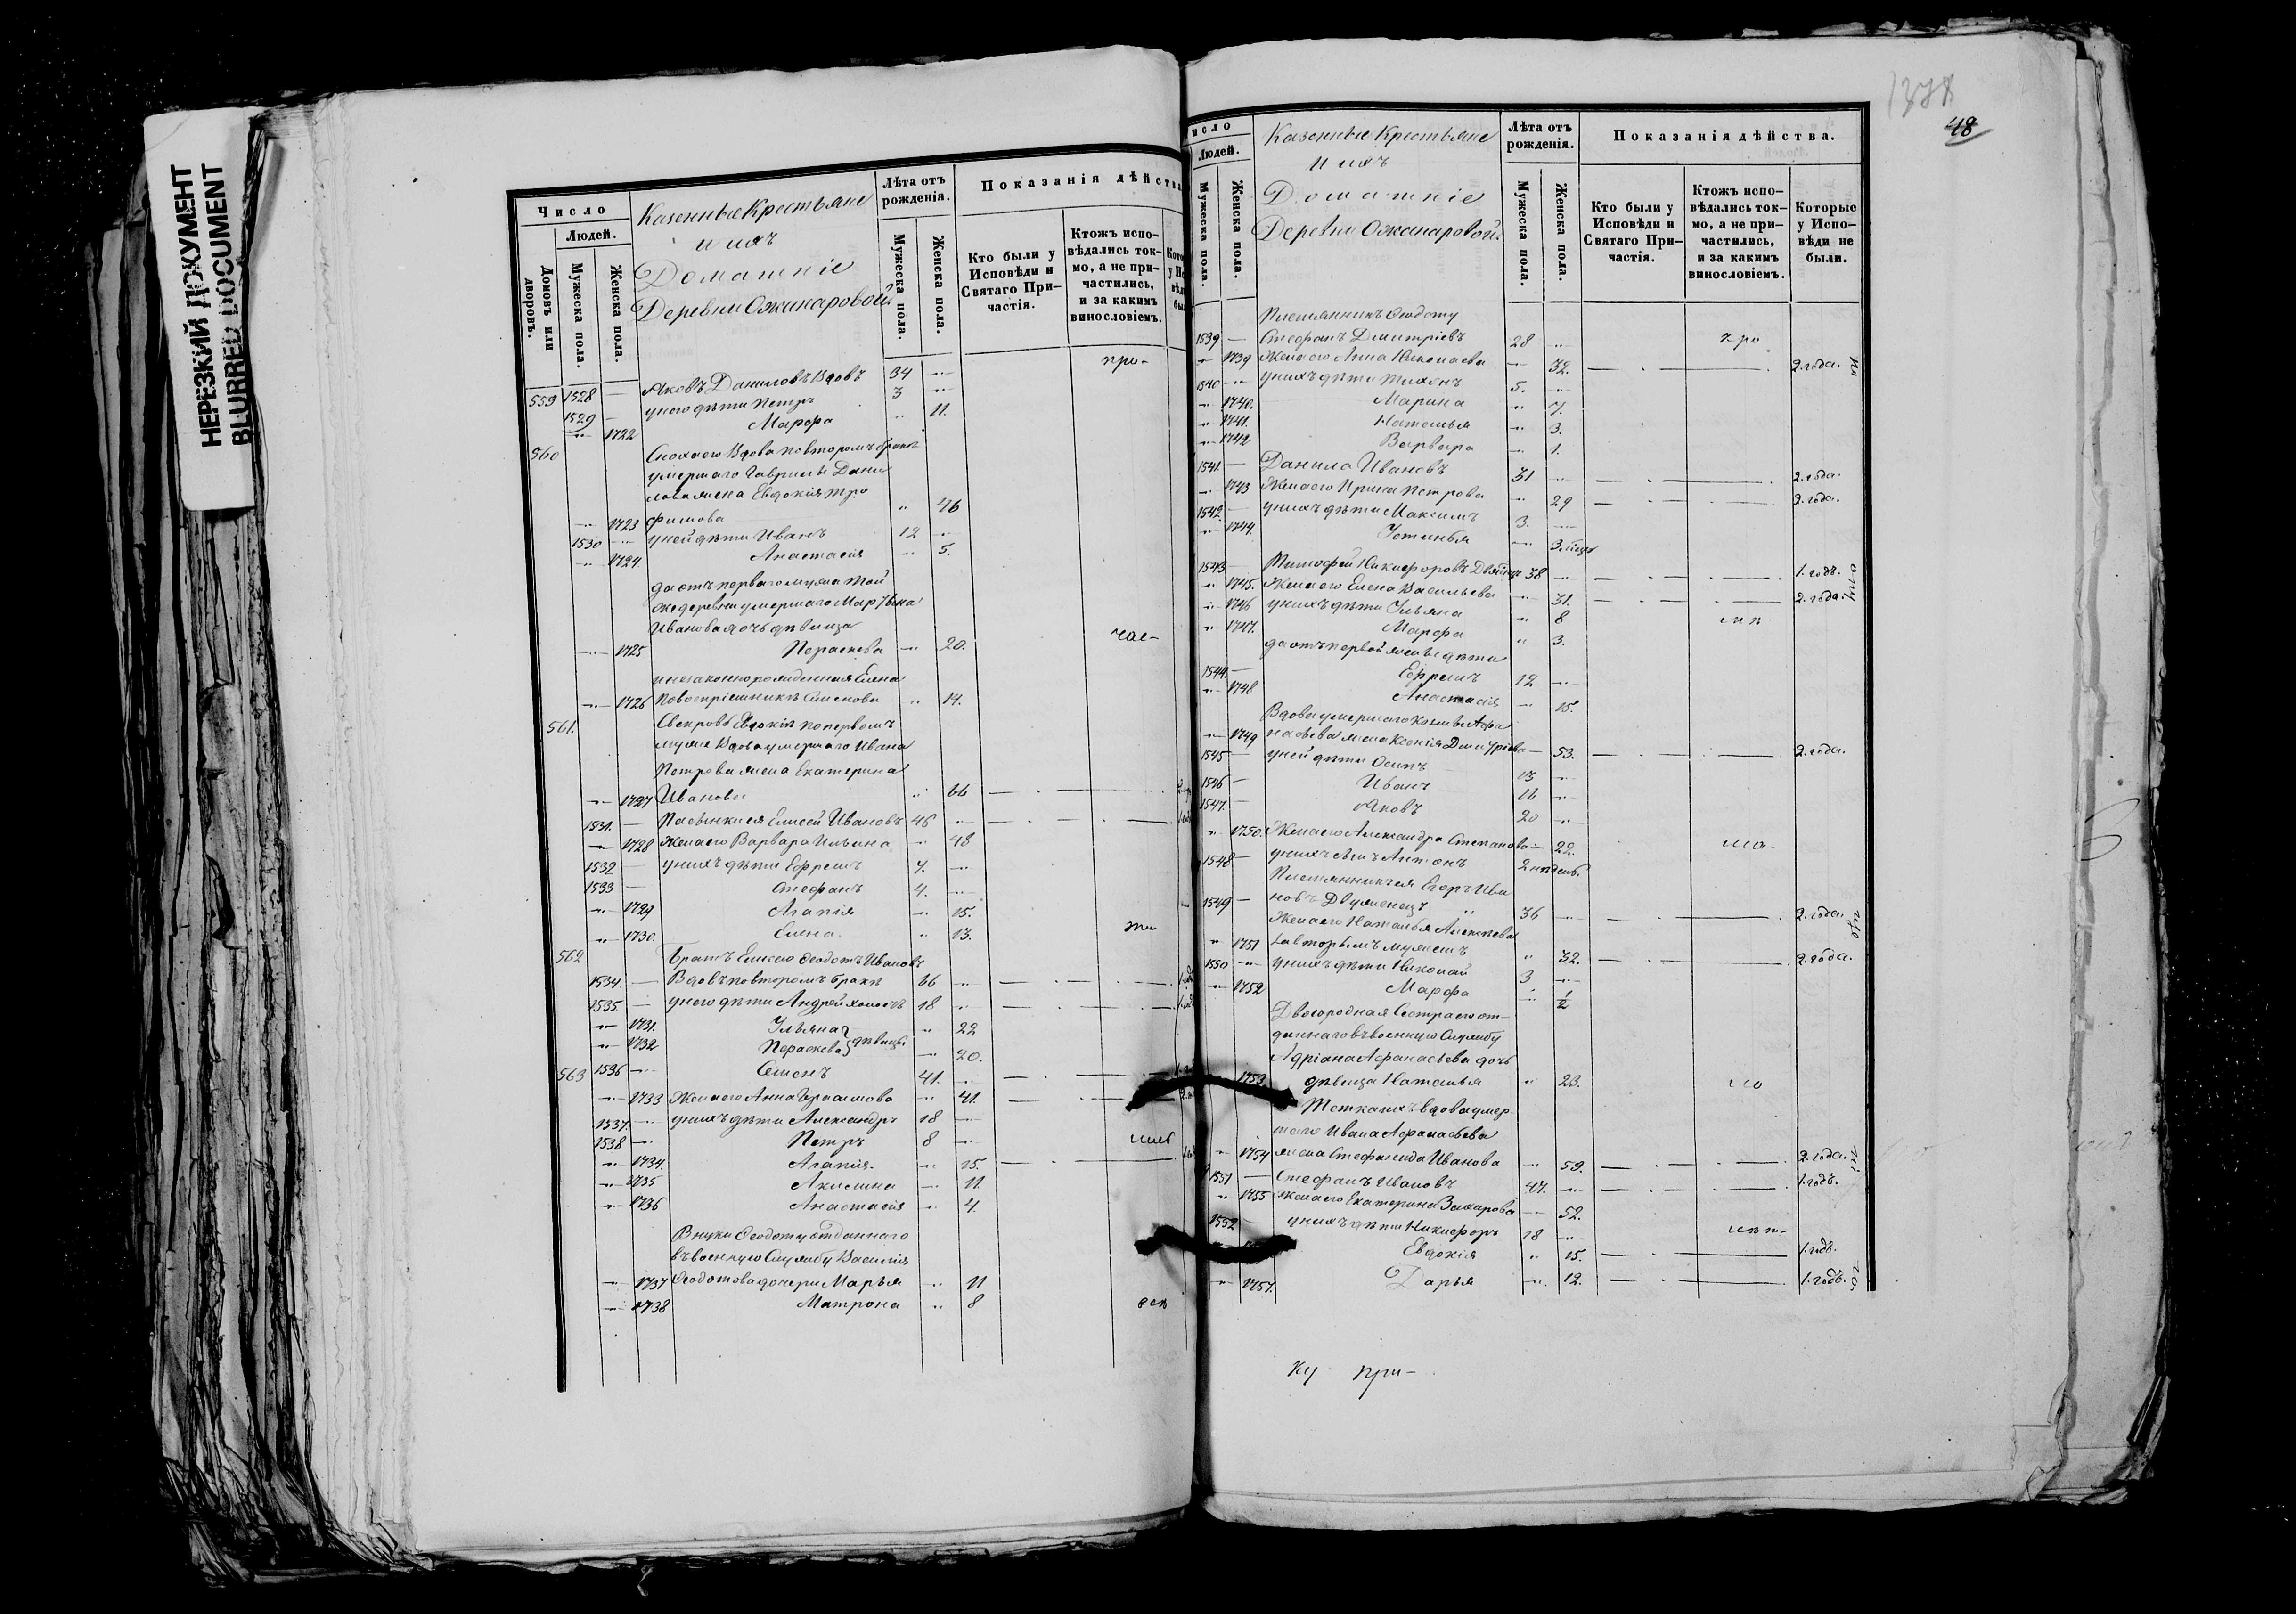 НЕРЕЗКИЙ ДОКУМЕНТ
BLURRED DOCUMENT
Число
Людей.
Домовъ или дворовъ.
Мужеска пола.
Женска пола.
Казенные Крестьяне
и ихъ
Домашніе
Деревни
Лѣта отъ рожденія.
Мужеска пола.
Женска пола.
Показанія дѣйства
Кто были у Исповѣди и Святаго Причастія.
Ктожъ исповѣдались токмо, а не причастились, и за какимъ винословіемъ.
про-
559 1528 — Яковъ Даниловъ Вдовъ 34
1529 — у него дѣти Петръ 3
1722 Марфа 11.
560 Сноха его Вдова по второмъ бракѣ
умершаго Гаврилы Дани
лова жена Евдокія Тро
1723 фимова 46
1530 у ней дѣти Иванъ 12
1724 Анастасія 5.
да отъ перваго мужа той
же деревни умершаго
Иванова дочь дѣвица
1725 Параскева 20. час-
и незаконнорожденная Елена
1726 по воспріемникѣ Семенова 14.
561. Свекровь Евдокіи по первомъ
мужѣ Вдова умершаго Ивана
Петрова жена Екатерина
1727 Иванова 66
1531. — Пасынкъ ея Елисей Ивановъ 46
1728 Жена его Варвара Ильина 48
1532 — у нихъ дѣти Ефремъ 7.
1533 — Стефанъ 4.
1729 Агапія 15.
1730. Елена 13. ти
562 Братъ Елисею Ѳеодотъ Ивановъ
1534. — Вдовъ по второмъ бракѣ 66
1535 — у него дѣти Андрей холостъ 18
1731. Ульяна 22
1732 Параскева } дѣвицы 20.
563 1536 — Семенъ 41.
1733 Жена его Анна Герасимова 41.
1537. — у нихъ дѣти Александръ 18
1538 — Петръ 8
1734. Агапія 15.
1735 Акилина 11
1736 Анастасія 4.
Внуки Ѳеодоту отданнаго
въ военную Службу Василія
1737 Ѳеодотова дочери Марья 11
1738 Матрона 8
1378
48
исло
Людей.
Мужеска пола.
Женска пола.
Казенные Крестьяне
и ихъ
Домашніе
Деревни
Лѣта отъ рожденія.
Мужеска пола.
Женска пола.
Показанія дѣйства.
Кто были у Исповѣди и Святаго Причастія.
Ктожъ исповѣдались токмо, а не причастились, и за какимъ винословіемъ.
Которые у Исповѣди не были.
Племянникъ Ѳеодоту
1539 — Стефанъ Дмитріевъ 28
1739 Жена его Анна Николаева 32. 2. года.
1540 у нихъ дѣти Тихонъ 5.
1740. Марина 7.
1741. Наталья 3.
1742 Варвара 1.
1541. — Данило Ивановъ 31 2. года.
1743 Жена его Ирина Петрова 29 2. года.
1542 — у нихъ дѣти Максимъ 3.
1744. Устинья
1543 — Тимофей Никифоровъ 38 1. годъ.
1745. Жена его Елена Васильева 31. 2. года.
1746 у нихъ дѣти Ульяна 8
1747. Марфа 3.
да отъ первой жены дѣти
1544. — Ефремъ 12
1748 Анастасія 15.
Вдова умершаго Козьмы Афа
1749 насьева жена Ксенія Дмитріева 53. 2. года.
1545 — у ней дѣти Осипъ 13
1546 — Иванъ 16
1547. — Яковъ 20
1750. Жена его Александра Степанова 22.
1548 — у нихъ сынъ Антонъ 2 недѣль.
Племянникъ ея Егоръ Ива
1549 — новъ Двуженецъ 36 2. года.
Жена его Наталья Алексѣева
1751 за вторымъ мужемъ 32. 2. года.
1550 у нихъ дѣти Николай 3
1752 Марфа
Двоюродная Сестра его от-
даннаго въ военную Службу
Адріана Афанасьева дочь
1753 дѣвица Наталья 23.
Тетка ихъ вдова умер
шаго Ивана Афанасьева
1754 жена Стефанида Иванова 59. 2. года.
1551 — Стефанъ Ивановъ 47. 1. годъ.
1755 Жена его Екатерина Захарова 52.
1552 — у нихъ дѣти Никифоръ 18
Евдокія 15. 1. годъ.
1757. Дарья 12. 1. годъ.
ку при-